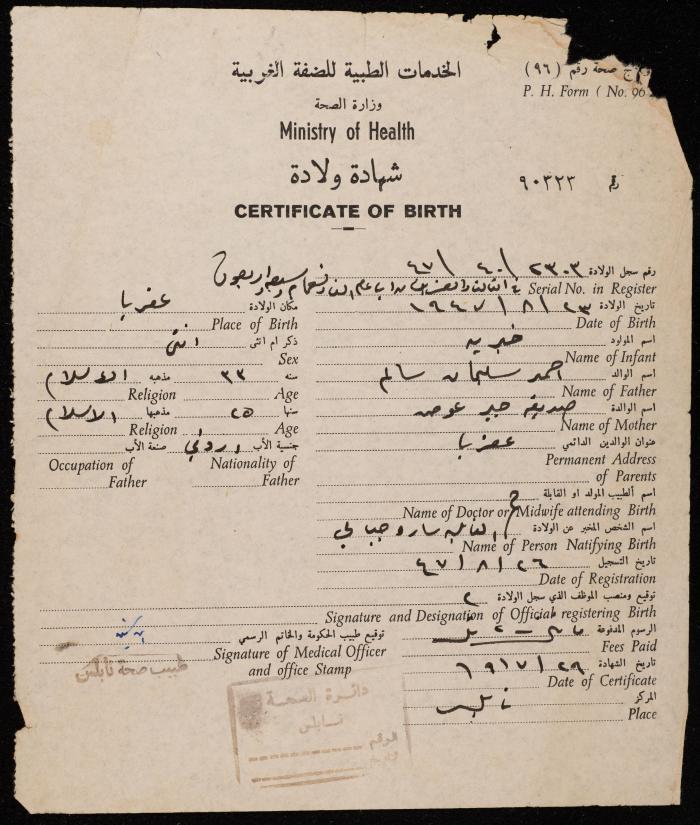 الخدمات الطبية للضفة الغربية
صحة رقم (٩٦)
P. H. Form ( No. 96
وزارة الصحة
Ministry of Health
شهادة ولادة
رقم ٩٠٣٢٣
CERTIFICATE OF BIRTH
رقم سجل الولادة ٢٣٠٣ / ٤٠ / ٤٧
Serial No. in Register
تاريخ الولادة ٢٣ / ٨ / ١٩٤٧
Date of Birth
مكان الولادة عقربا
Place of Birth
اسم المولود خيريه
Name of Infant
ذكر ام انثى انثى
Sex
اسم الوالد احمد سليمان سالم
Name of Father
سنه ٣٣ مذهبه الاسلام
Age Religion
اسم الوالدة صديقه جبر عوض
Name of Mother
سنها ٢٥ مذهبها الاسلام
Age Religion
عنوان الوالدين الدائمي عقربا
Permanent Address
of Parents
جنسية الأب اردني صنعة الأب
Nationality of Father
Occupation of Father
اسم الطبيب المولد او القابلة
Name of Doctor or Midwife attending Birth
اسم الشخص المخبر عن الولادة القابله
Name of Person Natifying Birth
تاريخ التسجيل ٢٦ / ٨ / ٤٧
Date of Registration
توقيع ومنصب الموظف الذي سجل الولادة
Signature and Designation of Official registering Birth
الرسوم المدفوعة
Fees Paid
توقيع طبيب الحكومة والخاتم الرسمي
Signature of Medical Officer
and office Stamp
طبيب صحة نابلس
تاريخ الشهادة
Date of Certificate
المركز نابلس
Place
دائرة الصحة
نابلس
الرقم
التاريخ